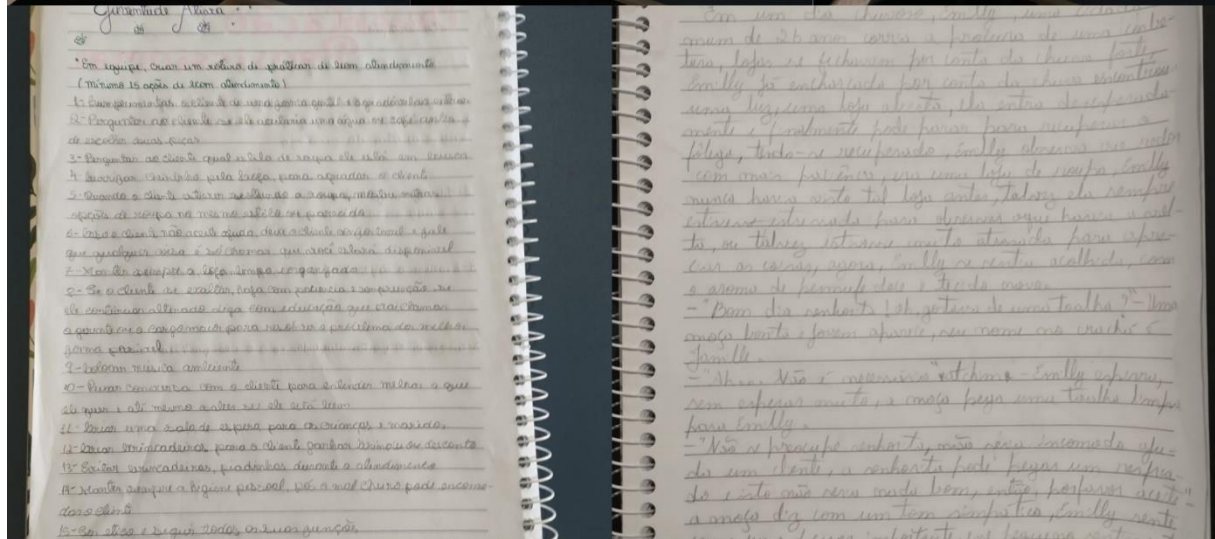 *Em equipe, criar um roteiro de práticas de bom atendimento
(mínimo 15 ações de bom atendimento)
1- Cumprimentar o cliente de uma forma gentil e
2- Perguntar ao cliente se ele aceitaria uma água ou café antes
de escolher suas peças
3- Perguntar ao cliente qual estilo de roupa ele está em busca
4- chirinho pela loja, para agradar o cliente
5- Quando o cliente estiver a roupa, mostre outras
opções de roupa no mesmo estilo ou parecida
6- Caso o cliente não aceite ajuda, deixe o cliente e fale
que qualquer coisa é só chamar que você estará disponível
7- Manter sempre a loja limpa e organizada
8- Se o cliente se exaltar, haja com paciência e compreensão, se
ele continuar alterado diga com educação que irá chamar
o gerente ou o para resolver o problema da melhor
forma possível
9- Colocar música ambiente
10- Puxar conversa com o cliente para entender melhor o que
ele quer e até mesmo saber se ele está bem
11- Criar uma sala de espera para as crianças e maridos
12- Criar brincadeiras para o cliente ganhar brinde ou desconto
13- Evitar brincadeiras, piadinhas durante o atendimento
14- Manter sempre a higiene pessoal, pós o mal cheiro pode incomo-
dar o cliente
15- Ser ético e seguir todas as suas funções
Em um dia chuvoso, Emilly, uma
de 26 anos corria a procura de uma cober-
tera, lojas se fecharam por conta da chuva forte,
Emilly já encharcada por conta da chuva encontrou
uma luz, uma loja aberta, ela entra desesperada-
mente e finalmente pode parar para recuperar o
fôlego, tendo-se recuperado, Emilly observa ao redor
com mais paciência, era uma loja de roupa, Emilly
nunca havia visto tal loja antes, talvez ela sempre
estivesse estressada para observar oque havia a vol-
ta, ou talvez estivesse muito atrasada para apre-
ciar as coisas, agora, Emilly se sentiu acolhida, com
o aroma de perfume doce e tecido novo.
-"Bom dia senhorita! Oh, gostaria de uma toalha?"- Uma
moça bonita e jovem aparece, seu nome no crachá é
Jamille.
-"Ah... Não é necessário *atchim*- Emilly espirra,
sem esperar muito, a moça pega uma toalha limpa
para Emilly.
-"Não se procupe senhorita, não seria incomodo aju-
da um cliente, a senhorita pode pegar um resfria-
do e isto não seria nada bom, então, porfavor aceite"-
a moça diz com um tom simpático, Emilly sente